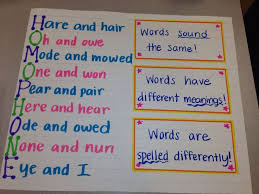 Hare and hair
Oh and owe
Mode and mowed
One and won
Pear and pair
Here and hear
Ode and owed
None and nun
Eye and I
Words sound
the same!
Words have
different meanings!
Words are
spelled differently!